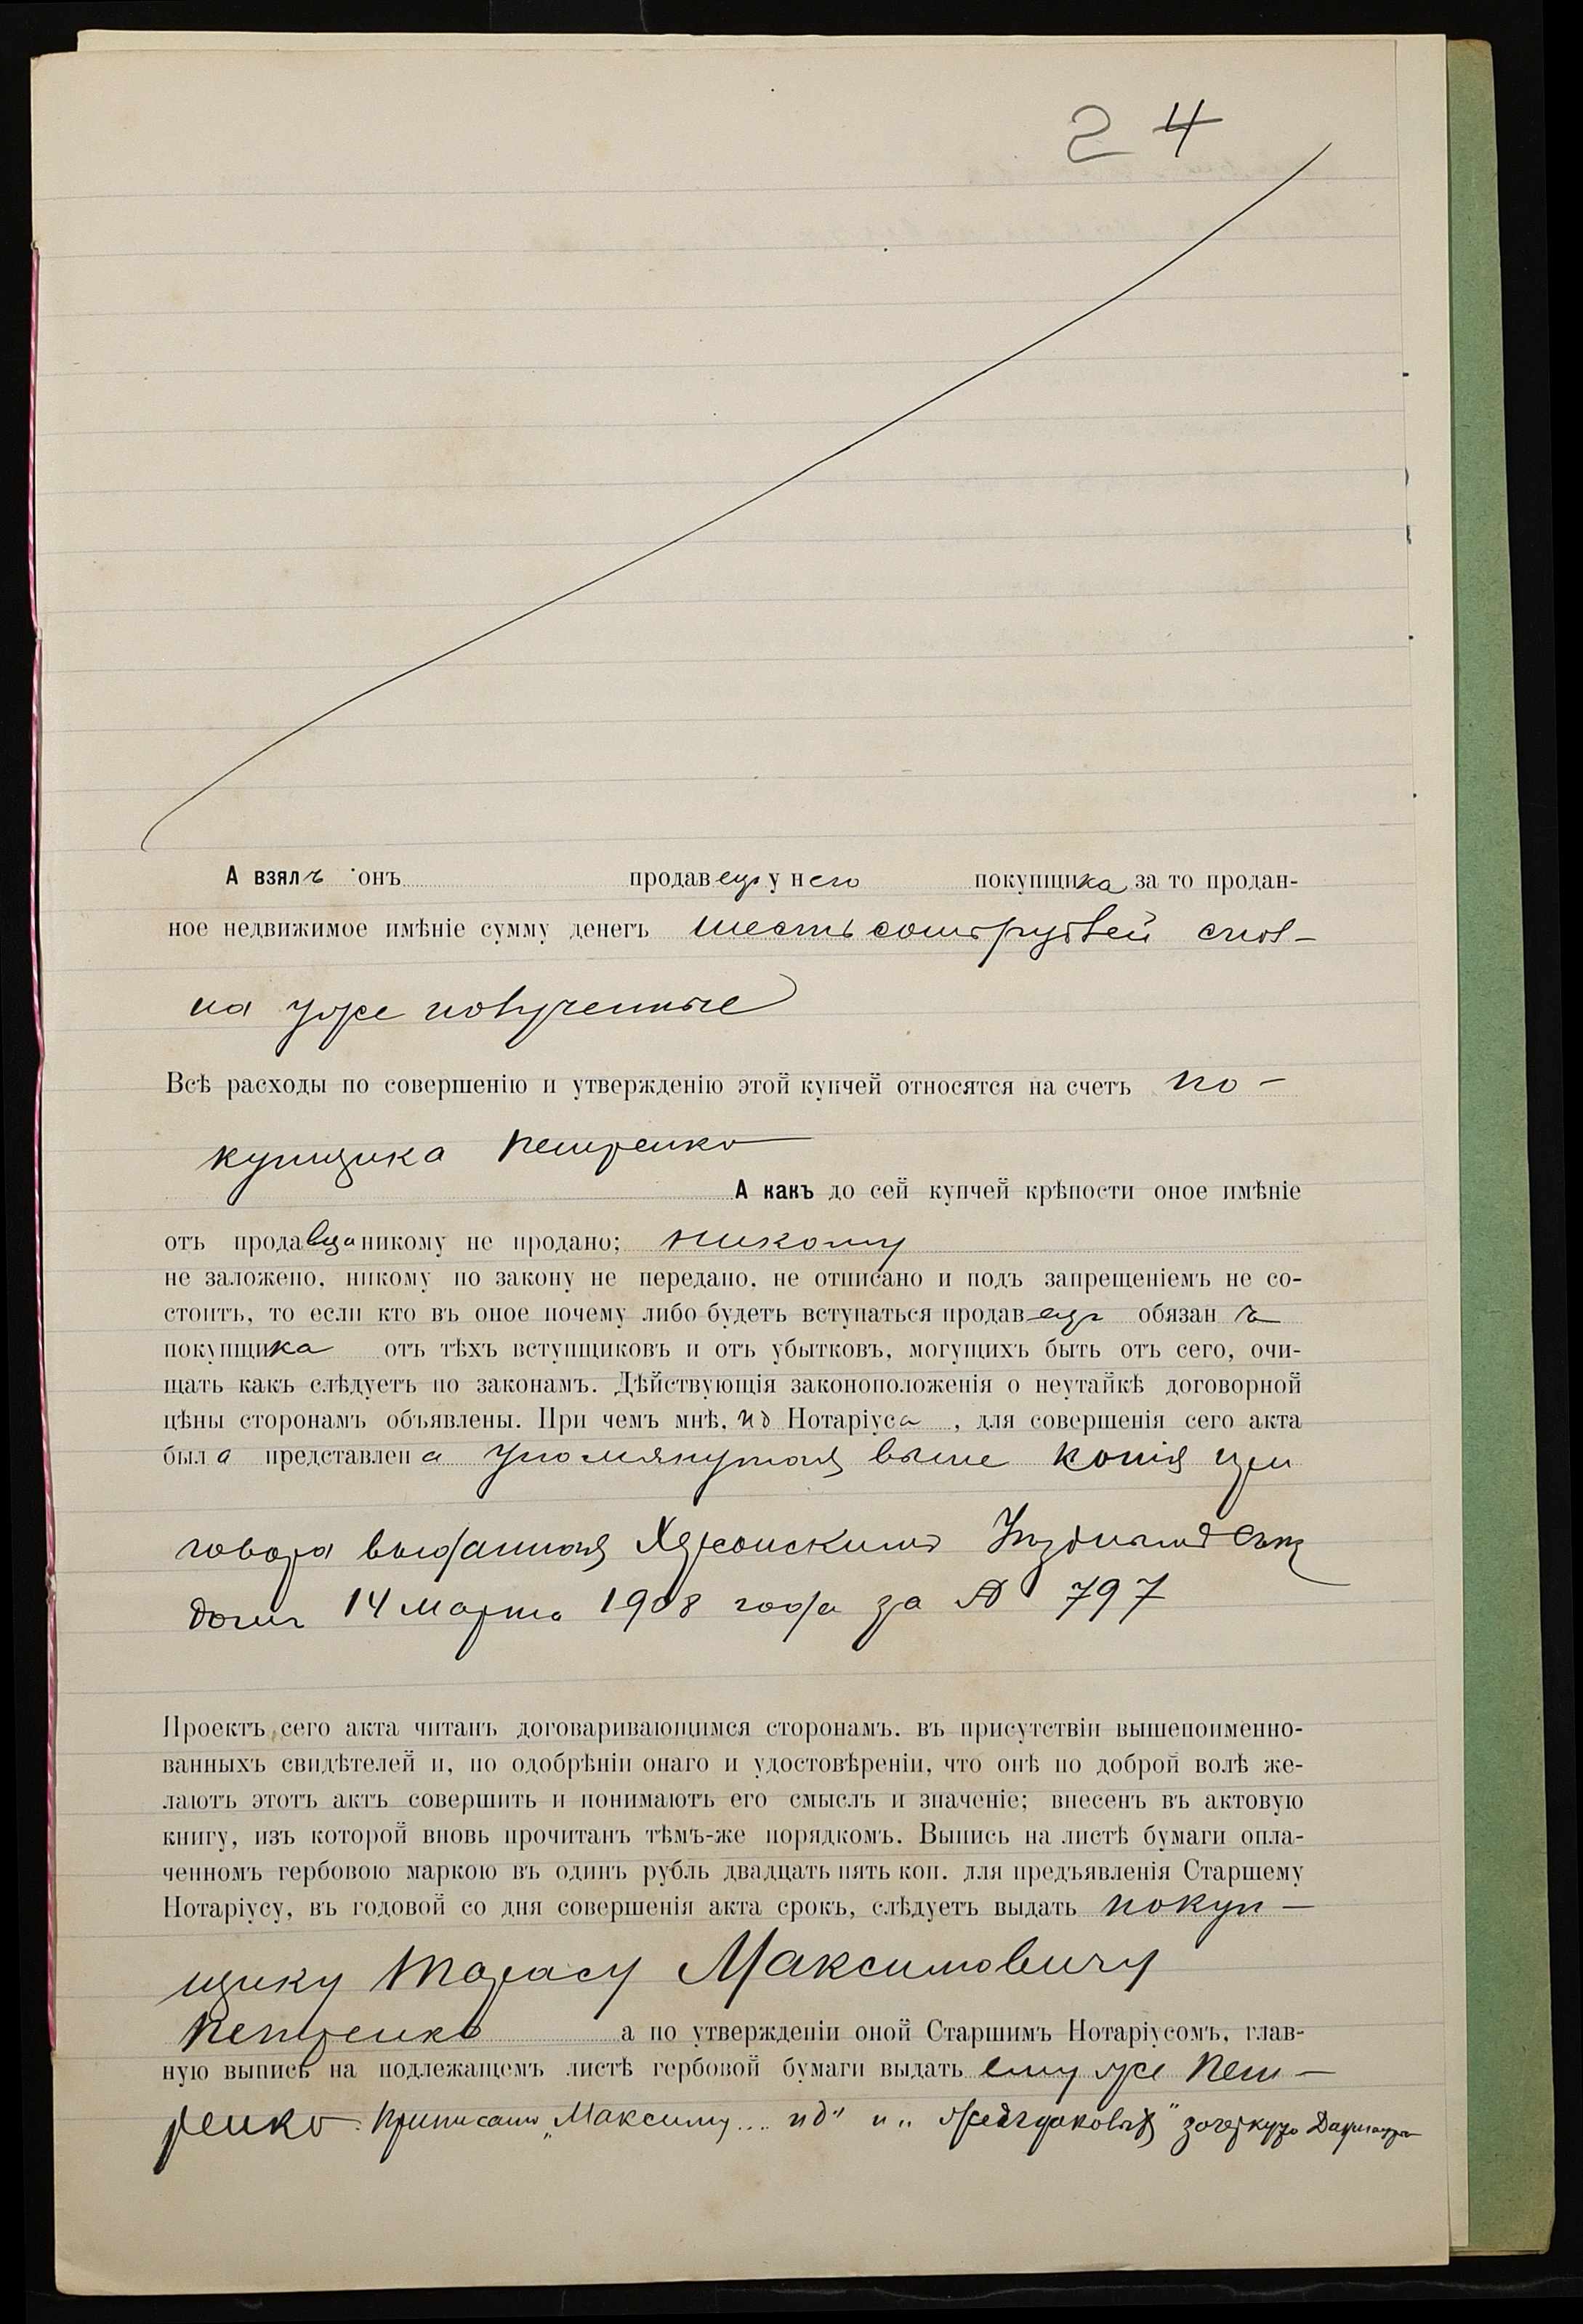 24
А взялъ онъ продавецъ у него покупщика за то продан-
ное недвижимое имѣніе сумму денегъ шестьсотъ рублей спол-
на уже полученные
Всѣ расходы по совершенію и утвержденію этой купчей относятся на счетъ по-
купщика Петренко
А какъ до сей купчей крѣпости оное имѣніе
отъ продавца никому не продано; никому
не заложено, никому по закону не передано, не отписано и подъ запрещеніемъ не со-
стоитъ, то если кто въ оное почему либо будетъ вступаться продавецъ обязанъ
покупщика отъ тѣхъ вступщиковъ и отъ убытковъ, могущихъ быть отъ сего, очи-
щать какъ слѣдуетъ по законамъ. Дѣйствующія законоположенія о неутайкѣ договорной
цѣны сторонамъ объявлены. При чемъ мнѣ, ид Нотаріуса, для совершенія сего акта
была представлена упомянутая выше копія при
говора выданная Херсонскимъ Уѣзднымъ Съѣз
домъ 14 Марта 1908 года за № 797
Проектъ сего акта читанъ договаривающимся сторонамъ. въ присутствіи вышепоименно-
ванныхъ свидѣтелей и, по одобрѣніи онаго и удостовѣреніи, что онѣ по доброй волѣ же-
лаютъ этотъ актъ совершить и понимаютъ его смыслъ и значеніе; внесенъ въ актовую
книгу, изъ которой вновь прочитанъ тѣмъ-же порядкомъ. Выпись на листѣ бумаги опла-
ченномъ гербовою маркою въ одинъ рубль двадцать пять коп. для предъявленія Старшему
Нотаріусу, въ годовой со дня совершенія акта срокъ, слѣдуетъ выдать покуп-
щику Тарасу Максимовичу
Петренко а по утвержденіи оной Старшимъ Нотаріусомъ, глав-
ную выпись на подлежащемъ листѣ гербовой бумаги выдать ему же Пет-
ренко. Приписано „Максиму... ид" и „